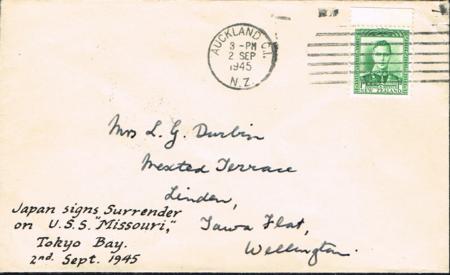 AUCKLAND C.1.
3 - PM
2 SEP
1945
N.Z.
NEW ZEALAND
Mrs L. G. Durbin
Mexted Terrace
Linden,
Tawa Flat,
Wellington.
Japan signs Surrender
on U.S.S. "Missouri,"
Tokyo Bay.
2nd. Sept. 1945